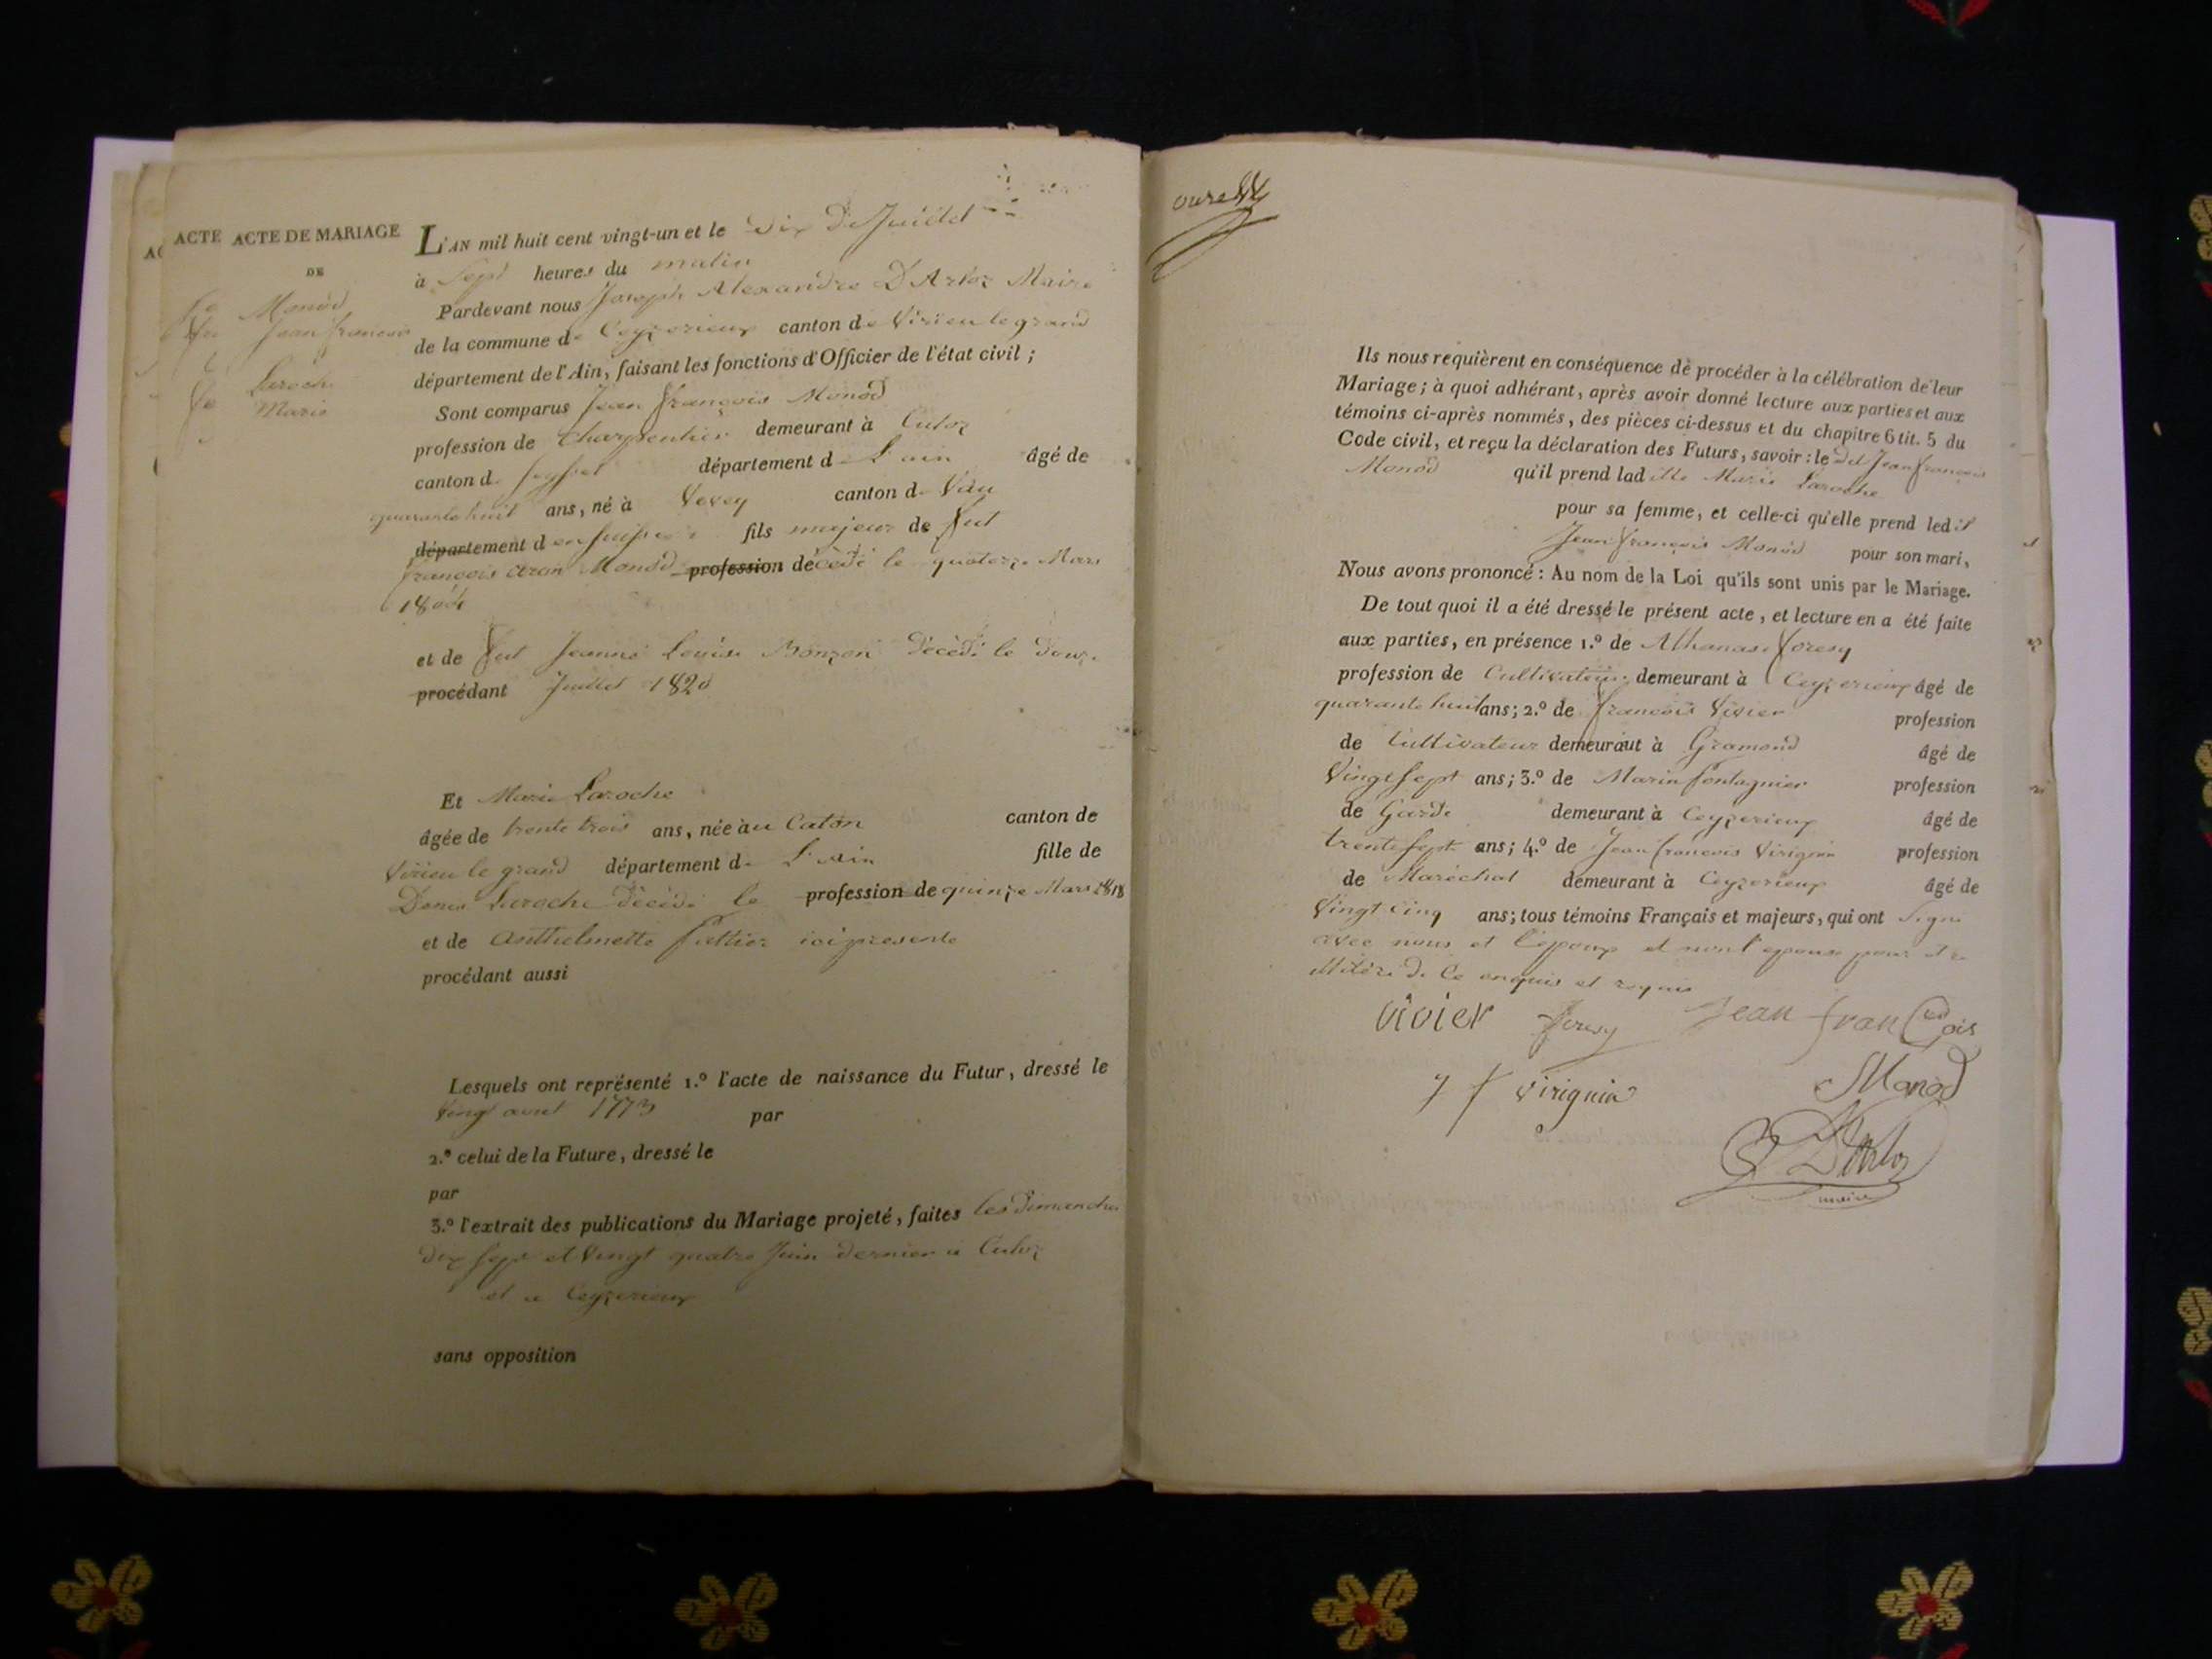 ACTE
ACTE DE MARIAGE
DE
Monod
Jean françois
Laroche
Marie
L'AN mil huit cent vingt-un et le Dix De Juillet
à Sept heures du matin
Pardevant nous Joseph Alexandre D'Arloz Maire
de la commune de Ceyzerieux canton de Virieu le grand
département de l'Ain, faisant les fonctions d'Officier de l'état civil ;
Sont comparus Jean françois Monod
profession de Charpentier demeurant à Culoz
canton de Seyssel département de L'ain âgé de
quarante huit ans, né à Vevey canton de Vau
département d en Suisse fils majeur de fut
françois aron Monod profession décédé le quatorze Mars
et de fut Jeanne Louise Monzon décédé le douze
procédant Juillet 1820
Et Marie Laroche
âgée de trente trois ans, née au Caton canton de
Virieu le grand département de L'Ain fille de
Denis Laroche décédé le profession de quinze Mars 1818
et de Anthelmette fattier ici presente
procédant aussi
Lesquels ont représenté 1.º l'acte de naissance du Futur, dressé le
Vingt avril 1773 par
2.º celui de la Future, dressé le
par
3.º l'extrait des publications du Mariage projeté, faites les dimanches
dix sept et Vingt quatre Juin dernier à Culoz
et a Ceyzerieux
sans opposition
Ils nous requièrent en conséquence de procéder à la célébration de leur
Mariage ; à quoi adhérant, après avoir donné lecture aux parties et aux
témoins ci-après nommés, des pièces ci-dessus et du chapitre 6 tit. 5 du
Code civil, et reçu la déclaration des Futurs, savoir : le dit Jean françois
Monod qu'il prend ladite Marie Laroche
pour sa femme, et celle-ci qu'elle prend ledit
Jean françois Monod pour son mari,
Nous avons prononcé : Au nom de la Loi qu'ils sont unis par le Mariage.
De tout quoi il a été dressé le présent acte, et lecture en a été faite
aux parties, en présence 1.º de Athanase foresy
profession de Cultivateur demeurant à Ceyzerieux âgé de
quarante huit ans ; 2.º de françois Vivier profession
de Cultivateur demeurant à Gramond âgé de
Vingt sept ans ; 3.º de Marin fontagnier profession
de Garde demeurant à Ceyzerieux âgé de
trente sept ans ; 4.º de Jean francois Virignin profession
de Maréchal demeurant à Ceyzerieux âgé de
Vingt Cinq ans ; tous témoins Français et majeurs, qui ont Signé
avec nous et l'epoux et non l'epouse pour etre
illitéré de ce enquis et requis
vivier foresy Jean françois
J f virignin Monod
D'Arloz
maire